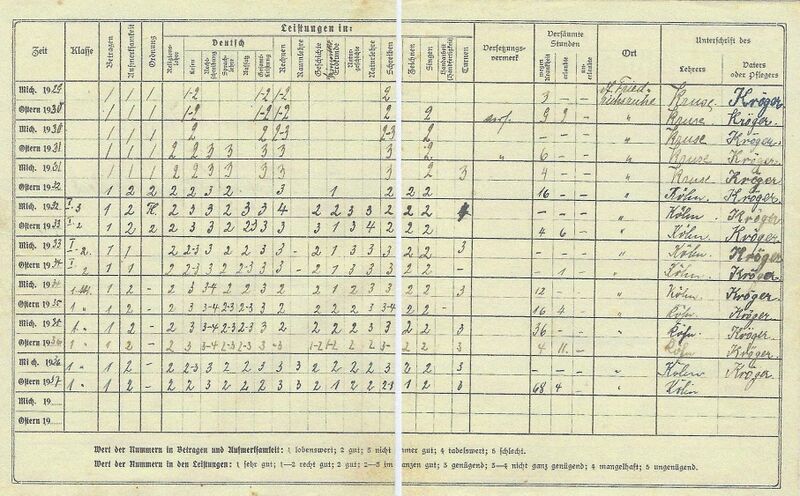 Leistungen in:
Zeit Klasse Betragen Aufmerksamkeit Ordnung Religionslehre Deutsch Rechnen Raumlehre Geschichte Erdkunde Naturgeschichte Naturlehre Schreiben Zeichnen Singen Handarbeit (Handfertigkeit) Turnen Versetzungsvermerk Versäumte Stunden Ort Unterschrift des
Lesen Rechtschreibung Sprachlehre Aufsatz Gesamtleistung wegen Krankheit erlaubte unerlaubte Lehrers Vaters oder Pflegers
Mich. 1929 1 1 1 1-2 1-2 1-2 2 3 - - Kruse. Kröger
Ostern 1930 1 1 1 1-2 1-2 1-2 2 2 9 2 - " Kruse Kröger
Mich. 1930 1 1 1 2 2 2-3 2-3 2 - - - " Kruse Kröger
Ostern 1931 1 1 1 2 2 3 3 3 3 3 2 " 6 - - " Kruse Kröger
Mich. 1931 1 1 1 2 2 3 3 3 3 3 2 3 4 - - " Kruse Kröger
Ostern 1932 1 2 2 2 2 3 2 3 1 2 2 2 16 - - " Köhn. Kröger
Mich. 1932 1 2 2 3 3 2 3 3 4 2 2 3 3 2 2 2 - - - " Köhn. Kröger
Ostern 1933 1 2 2 2 3 3 2 2-3 3 3 1 3 4 2 2 2 4 6 - " Köhn. Kröger
Mich. 1933 1 1 2 2-3 3 2 2 3 3 - 2 1 3 3 3 2 2 3 - - - " Köhn. Kröger
Ostern 1934 1 1 2 2-3 3 2 2-3 3 3 - 2 1 3 3 3 2 2 - - 1 - " Köhn. Kröger
Mich. 1934 1 2 - 2 3 3-4 2 2 3 2 2 1 2 3 3 2 2 3 12 - - " Köhn. Kröger
Ostern 1935 1 " 1 2 - 2 3 3-4 2-3 2-3 3 2 2 2 2 3 3-4 2 2 - 16 4 - " Köhn. Kröger
Mich. 1935 1 " 1 2 - 2 3 3-4 2-3 2-3 3 2 2 2 2 3 3 2 2 3 36 - - " Köhn. Kröger
Ostern 1936 1 " 1 2 - 2 3 3-4 2-3 2-3 3 2 2 3 4 11 - " Köhn Kröger
Mich. 1936 1 " 1 2 - 2 2-3 3 2 2 3 3 3 2 2 2 2 2 2 2 3 - - - " Köhn Kröger
Ostern 1937 1 " 1 2 - 2 2 3 2 2 3 3 3 2 1 2 2 2-3 1 2 3 68 4 - " Köhn
Mich. 19
Ostern 19
Wert der Nummern in Betragen und Aufmerksamkeit: 1 lobenswert; 2 gut; 3 nicht immer gut; 4 tadelswert; 5 schlecht.
Wert der Nummern in den Leistungen: 1 sehr gut; 1—2 recht gut; 2 gut; 2—3 im ganzen gut; 3 genügend; 3—4 nicht ganz genügend; 4 mangelhaft; 5 ungenügend.